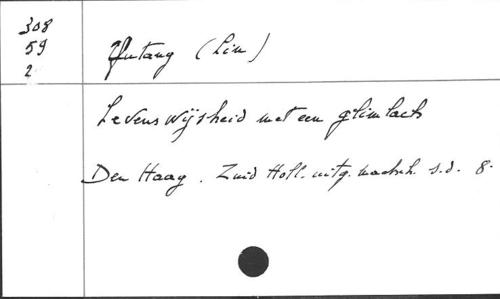 308
59
2
Yutang (Lin)
Levenswijsheid met een glimlach
Den Haag. Zuid Holl. uitg. maatsch. s.d. 8.